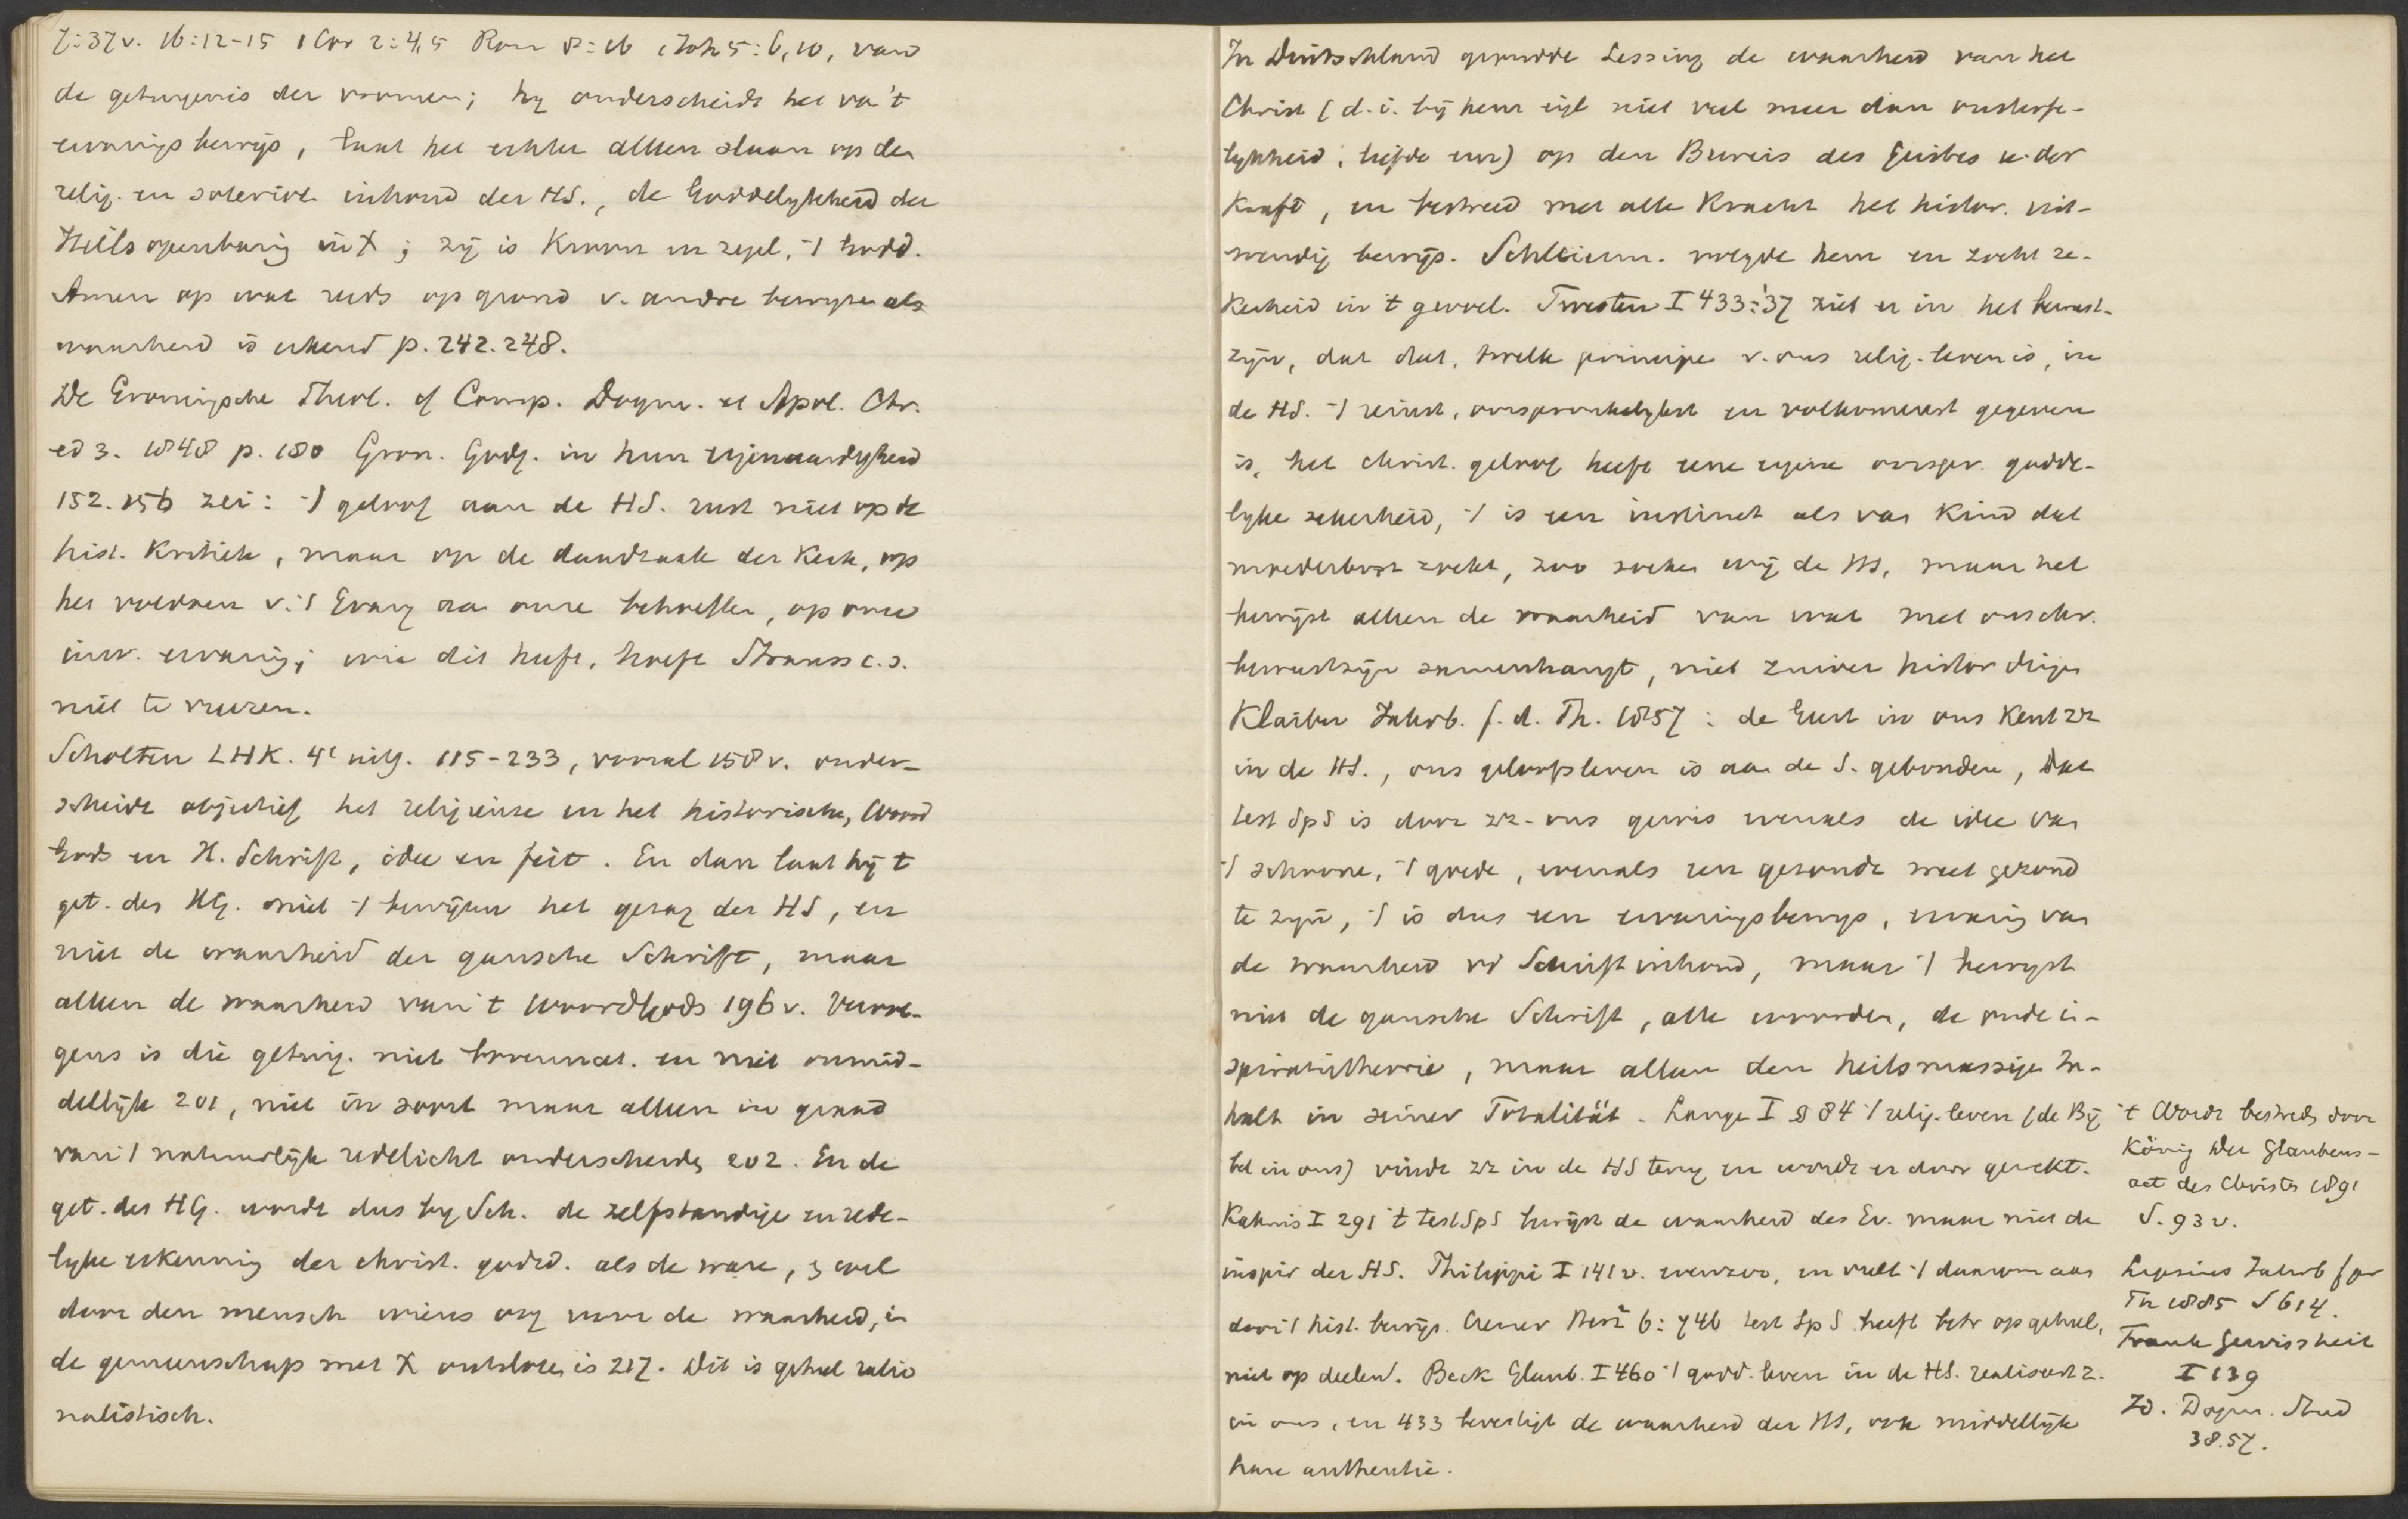 7:37v. 16:12-15 1 Cor 2:4,5 Rom 8:16 1 Joh 5:6,10, van
de getuigenis der vromen; hij onderscheidt het va 't
ervaringsbewijs, laat het echter alleen slaan op den
relig. en soteriol. inhoud der HS., de Goddelijkheid der
Heilsopenbaring in X; zij is Kroon en zegel, 't Godd.
Amen op wat reeds op grond v. andre bewijzen als
waarheid is erkend p. 242. 248.
De Groningsche Theol. cf Comp. Dogm. et Apol. Chr.
ed 3. 1848 p. 180 Gron. Godg. in hun eigenaardigheid
152. 156 zei: 't geloof aan de HS. rust niet op de
hist. Kritiek, maar op de daadzaak der Kerk, op
het voldoen v. 't Evang aa onze behoeften, op onze
inw. ervaring; wie dit heeft, hoeft Strauss c.s.
niet te vreezen.
Scholten LHK. 4e uitg. 115-233, vooral 158v. onder-
scheidt objectief het religieuse en het historische, Woord
Gods en H. Schrift, idee en feit. En dan laat hij t
get. des HG. niet 't bewijzen het gezag der HS, en
niet de waarheid der gansche Schrift, maar
alleen de waarheid van 't Woord Gods 196v. Verre-
gens is die getuig. niet bovennat. en niet onmid-
dellijk 201, niet in soort maar alleen in graad
van 't natuurlijk redelicht onderscheiden 202. En de
get. des HG. wordt dus bij Sch. de zelfstandige en rede-
lijke erkenning der christ. godsd. als de ware, en wel
door den mensch wiens oog voor de waarheid, in
de gemeenschap met X ontsloten is 217. Dit is geheel ratio
nalistisch.
In Duitschland grondde Lessing de waarheid van het
Christ (d.i. bij hem eigl niet veel meer dan onsterfe-
lijkheid, liefde enz) op den Beweis des Geistes u. der
Kraft, en bestreed met alle Kracht het histor. uit-
wendig bewijs. Schleierm. volgde hem en zocht ze-
kerheid in 't gevoel. Twesten I 433-'37 ziet er in het bewust-
zijn, dat dat, twelk principe v. ons relig. leven is, in
de HS. 't reinst, oorspronkelijkst en volkomenst gegeven
is, het christ. geloof heeft eene eigene oorspr. godde-
lijke zekerheid, 't is een instinct als van Kind dat
moederborst zoekt, zoo zoeken wij de HS, maar het
bewijst alleen de waarheid van wat met onschr.
bewustzijn samenhangt, niet zuiver histor dingen
Klaiber Jahrb. f. d. Th. 1857: de Geest in ons Kent zz
in de HS., ons geloofsleven is aan de S. gebonden, Dat
test SpS is door zz-ons gewis evenals de idee van
't schoone, 't goede, evenals een gezonde weet gezond
te zijn, 't is dus een ervaringsbewijs, ervaring van
de waarheid vd Schriftinhoud, maar 't bewijst
niet de gansche Schrift, alle woorden, de oude in-
spiratietheorie, maar alleen den heilsmässigen In-
halt in seiner Totalität. Lange I § 84 't relig. leven (de Bij
bel in ons) vindt zz in de HS terug en wordt er door gewekt.
Kahnis I 291 't test SpS bewijst de waarheid des Ev. maar niet de
inspir der HS. Philippi I 141v. evenzoo, en vult 't daarom aan
door 't hist. bewijs. Cremer 6:746 test Sp S heeft betr op geheel,
niet op deelen. Beck Glaub. I 460 't godd. leven in de HS. realiseert z.
in ons, en 433 bevestigt de waarheid der HS, ook middellijk
hare authentie.
't Wordt bestreds door
König Der Glaubens-
act des Christen 1891
S. 93v.
Lipsius Jahrb f pr
Th 1885 S 614.
Frank Gewissheit
I 139
Id. Dogm. Stud
38.57.